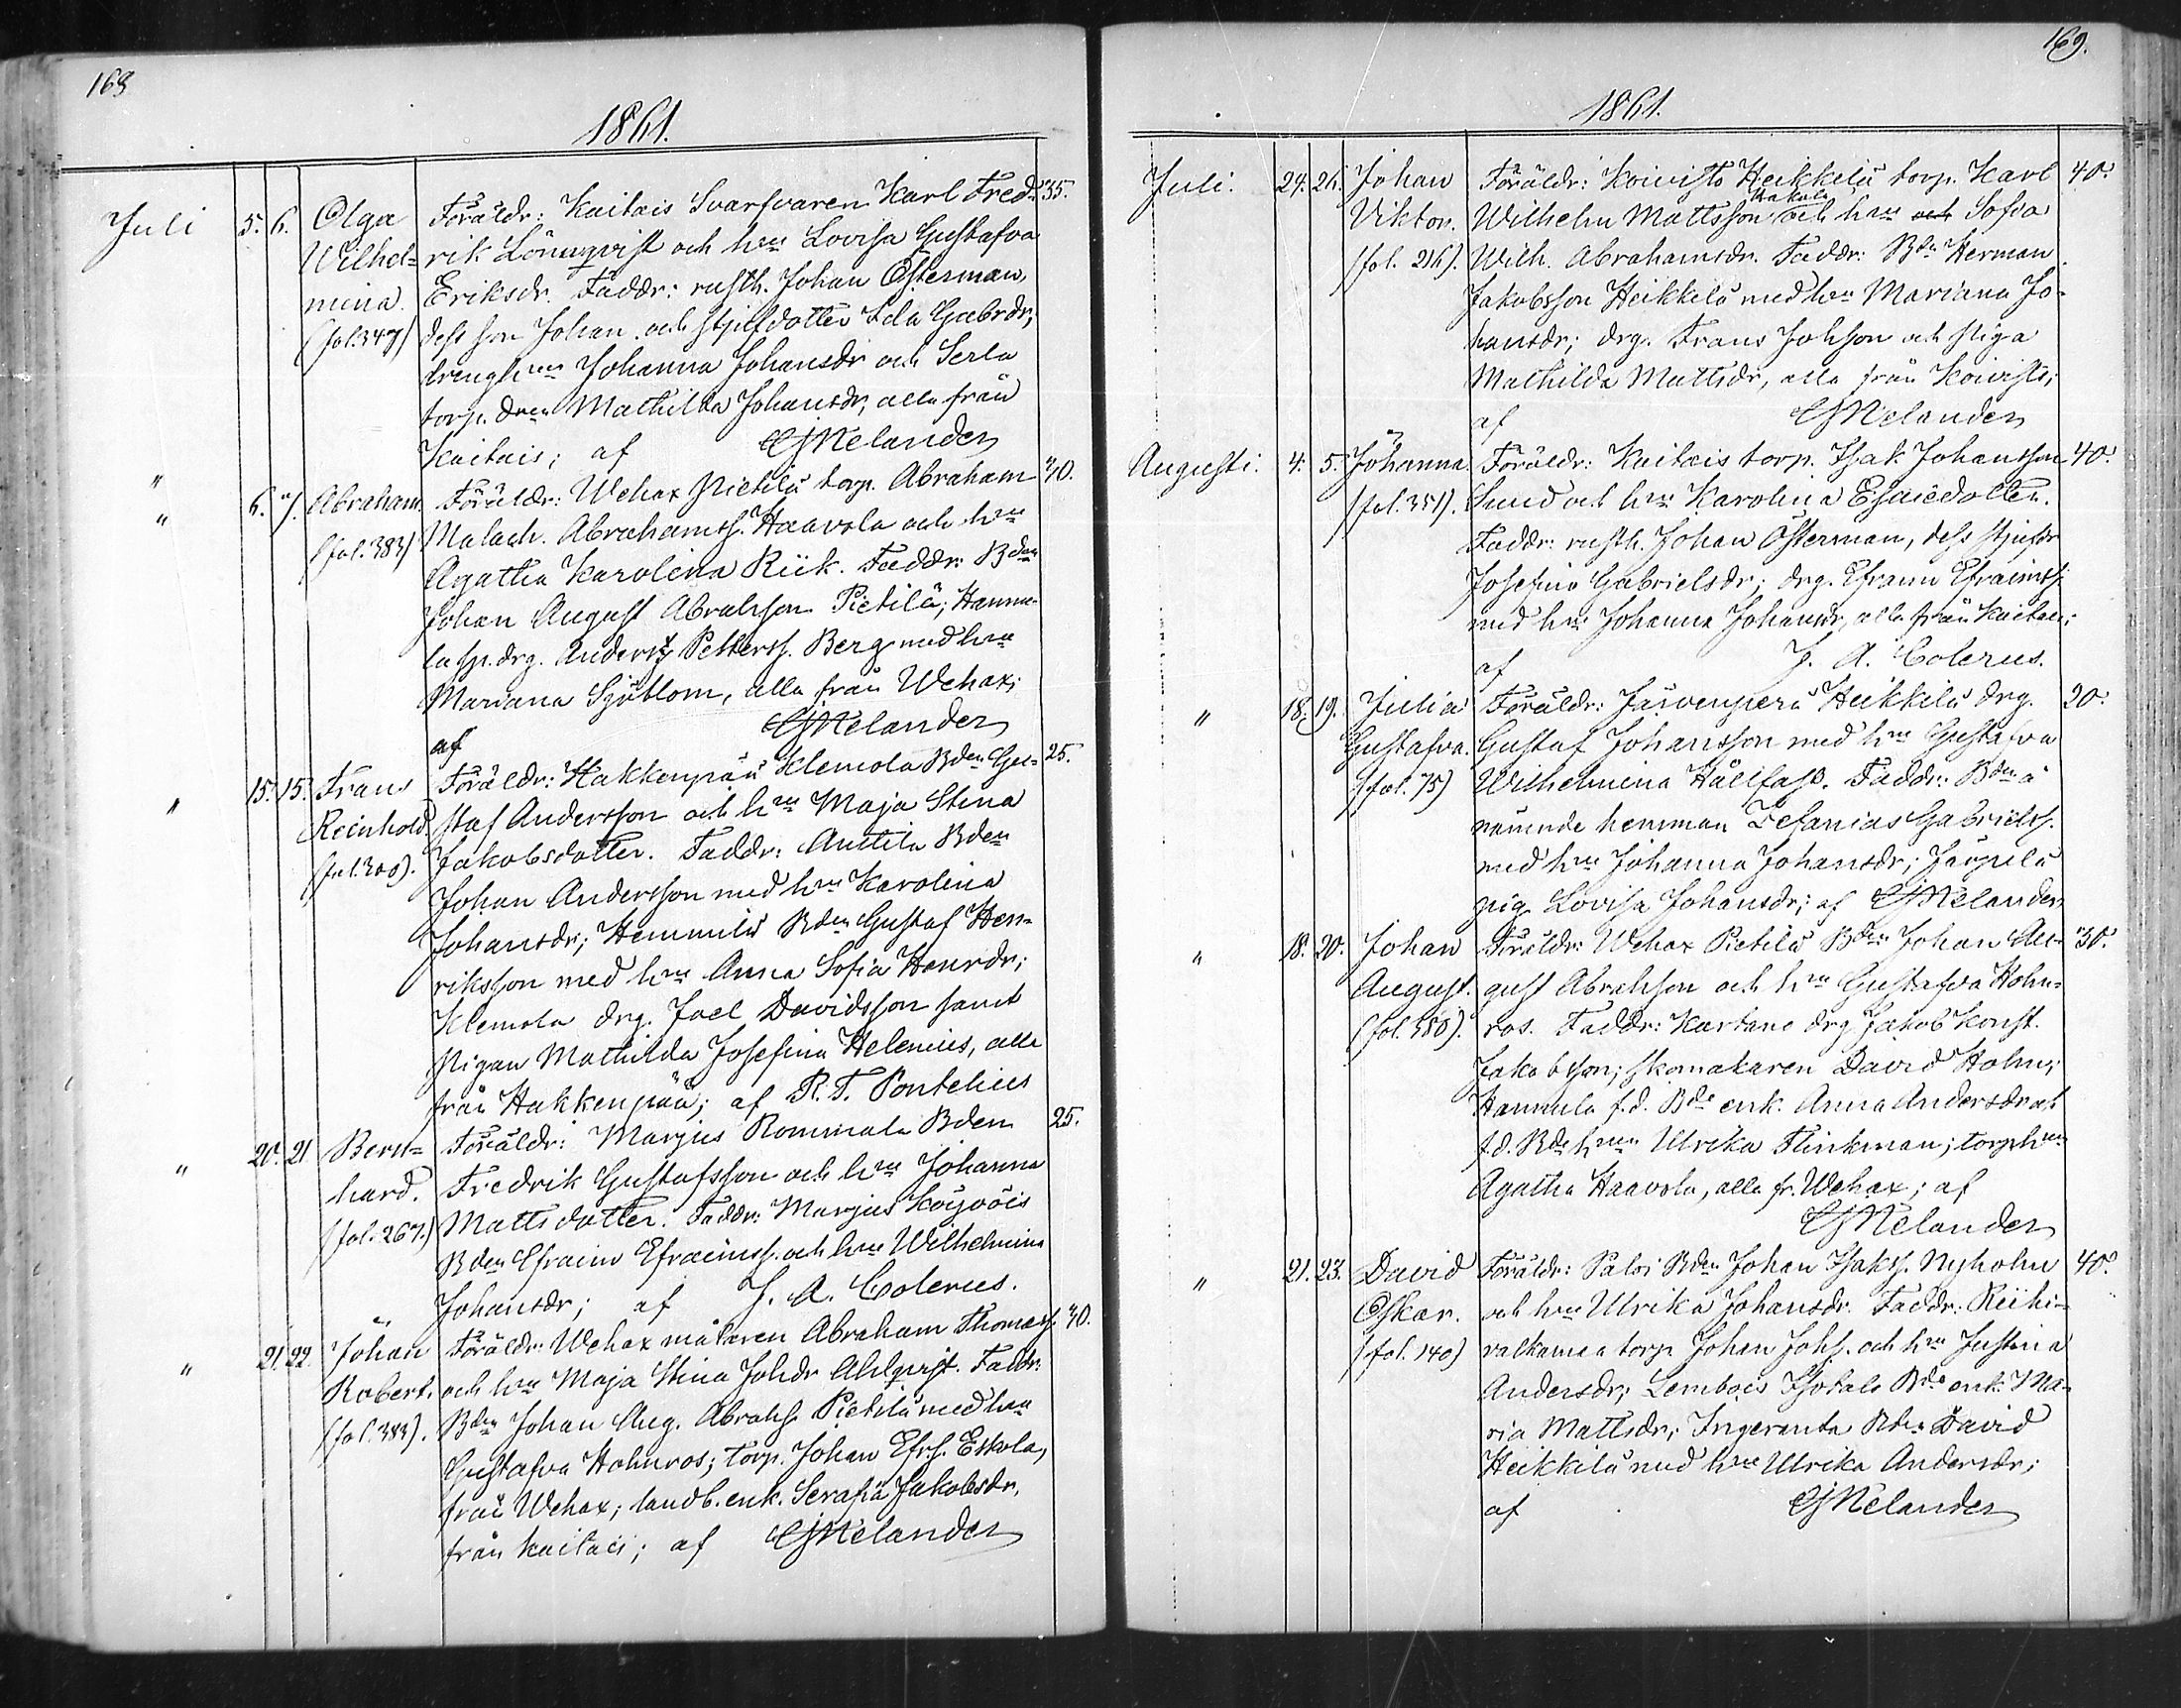 168
1861.
Juli 5. 6. Olga Föräldr: Kaitais Svarfvaren Karl Fred= 35.
Wilhel= rik Lönnqvist och hru Lovisa Gustafva
mina. Eriksdr. Faddr: rusth. Johan Österman,
(fol. 347) dess son Johan och stjufdotter Ida Gabrdr;
drenghrus Johanna Johansdr och Serla
torp. dren Mathilda Johansdr, alla från
Kaitais; af CJMelander
" 6. 7. Abraham. Föräldr: Wehax Pietilä torp. Abraham 40.
(fol. 383) Malach. Abrahamss. Haavola och hru
Agatha Karolina Riik. Faddr: Bden
Johan August Abrahsson Pietilä; Hannu-
la sp. drg. Anders Petterss. Berg med hru
Mariana Sjöblom, alla från Wehax;
af CJMelander
" 15. 15. Frans Föräldr: Hakkenpää Klemola Bden Gu= 25.
Reinhold staf Andersson och hru Maja Stina
(fol. 200). Jakobsdotter. Faddr: Anttila Bden
Johan Andersson med hru Karolina
Johansdr; Hemmilä Bden Gustaf Hen=
riksson med hru Anna Sofia Henrdr;
Klemola drg. Joel Davidsson samt
Pigan Mathilda Josefina Helenius, alla
från Hakkenpää; af R. T. Pontelius
" 20. 21 Bern= Föräldr: Marjus Rommala Bden 25.
hard. Fredrik Gustafsson och hru Johanna
(fol. 267.) Mattsdotter. Faddr: Marjus Köyvöis
Bden Efraim Efraimss. och hru Wilhelmina
Johansdr; af J. A. Colerus.
" 21. 22. Johan Föräldr: Wehax målaren Abraham Thomass. 40.
Robert. och hru Maja Stina Johdr Ahlqvist. Faddr:
(fol. 383). Bden Johan Aug. Abrahss. Pietilä med hru
Gustafva Holmros; torp. Johan Efr.s. Eskola,
från Wehax; landb. enk. Serafia Jakobsdr,
från Kaitais; af CJMelander
169.
1861.
Juli. 24. 26. Johan Föräldr: Koivisto Heikkilä torp. Karl 40.
Viktor. Wilhelm Mattsson Kakola och hru och Sofia
(fol. 216). Wilh. Abrahamsdr. Faddr: Bdn Herman
Jakobsson Heikkilä med hru Mariana Jo-
hansdr; drg. Frans Johsson och piga
Mathilda Mattsdr, alla från Koivisto;
af CJMelander
Augusti. 4. 5. Johanna. Föräldr: Kaitais torp. Isak Johansson 40.
(fol. 351). Sund och hru Karolina Esaiedotter.
Faddr: rusth. Johan Österman, dess stjufdr
Josefina Gabrielsdr; drg. Efraim Efraimss.
med hru Johanna Johansdr, alla från Kaitais;
af J. A. Colerus.
" 18. 19. Julia Föräldr: Järvenperä Heikkilä drg. 20.
Gustafva. Gustaf Johansson med hru Gustafva
(fol. 75) Wilhelmina Hållfast. Faddr: Bden å
nämnde hemman Zefanias Gabrielss.
med hru Johanna Johansdr; Jäypilä
pig. Lovisa Johansdr; af CJMelander
" 18. 20. Johan Föräldr: Wehax Pietilä Bden Johan Au- 30.
August. gust Abrahsson och hru Gustafva Holm=
(fol. 380). ros. Faddr: Kartano drg Jakob Konst.
Jakobsson; skomakaren David Holm;
Hannula f.d. Bde enk. Anna Andersdr och
f.d. Bde hrun Ulrika Flinkman; torphrun
Agatha Haavola, alla fr. Wehax; af
CJMelander
" 21. 23. David Föräldr: Palois Bden Johan Isakss. Nyholm 40.
Oskar. och hru Ulrika Johansdr. Faddr: Reihi=
(fol. 140) valkamaa torp. Johan Johss. och hru Justina
Andersdr; Lembois Isotalo Bde enk. Ma=
ria Mattsdr; Ingeranta Bden David
Heikkilä med hru Ulrika Andersdr;
af CJMelander